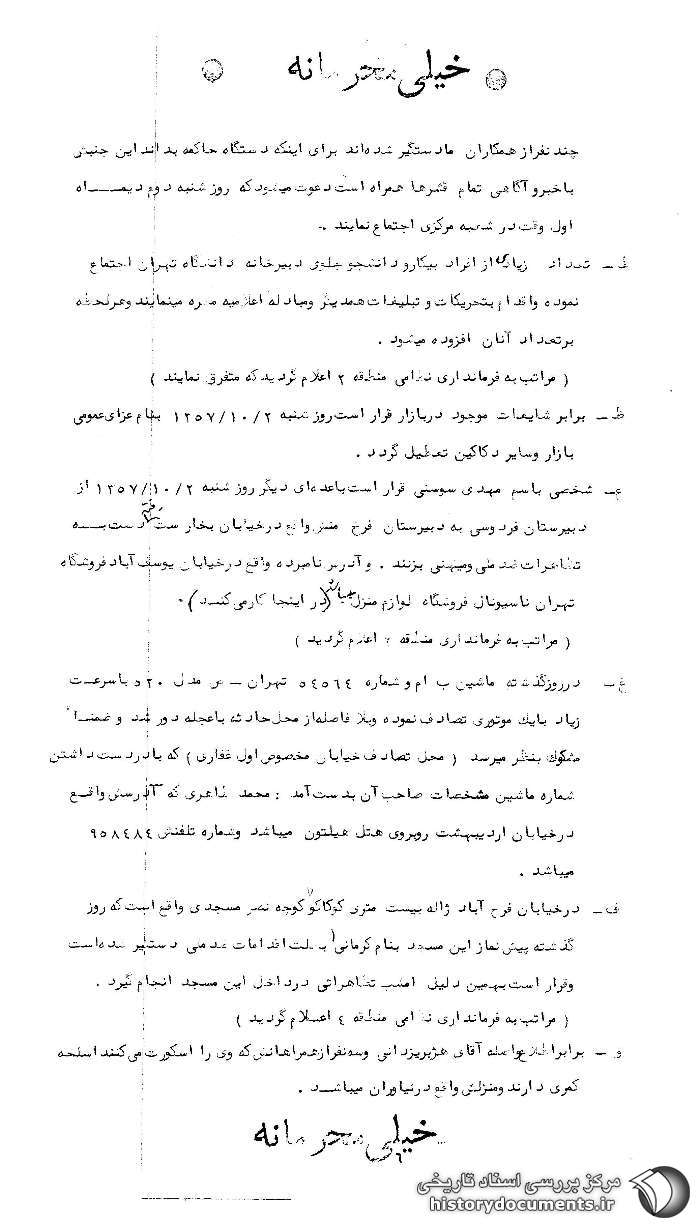 خیلی محرمانه
چند نفر از همکاران ما دستگیر شده‌اند برای اینکه دستگاه حاکمه بداند این جنبش
باخبر و آگاهی تمام قشرها همراه است دعوت میشود که روز شنبه دوم دیمـــاه
اول وقت در شعبه مرکزی اجتماع نمایند .
ط ـ تعداد زیادی از افراد بیکار و دانشجو جلوی دبیرخانه دانشگاه تهران اجتماع
نموده و اقدام بتحریکات و تبلیغات همدیگر و مبادله اعلامیه مضره مینمایند و هر لحظه
بر تعداد آنان افزوده میشود .
( مراتب به فرمانداری نظامی منطقه ۲ اعلام گردید که متفرق نمایند )
ظ ـ برابر شایعات موجود در بازار قرار است روز شنبه ۱۳۵۷/۱۰/۲ بنام عزای عمومی
بازار و سایر دکاکین تعطیل گردد .
ع ـ شخصی باسم مهدی سوسنی قرار است با عده‌ای دیگر روز شنبه ۱۳۵۷/۱۰/۲ از
دبیرستان فردوسی به دبیرستان فرخ منش واقع در خیابان بخارست رفته دست بـــه
تظاهرات ضد ملی و میهنی بزنند . و آدرس نامبرده واقع در خیابان یوسف آباد فروشگاه
تهران ناسیونال فروشگاه لوازم منزل میباشد ( در اینجا کار می‌کنـد ) .
( مراتب به فرمانداری منطقه اعلام گردید )
غ ـ در روز گذشته ماشین ب ام و شماره ۵٤۵٦٤ تهران ـ مدل ۵۲۰ با سرعت
زیاد با یک موتوری تصادف نموده و بلا فاصله از محل حادثه با عجله دور شد و ضمنا"
مشکوک بنظر میرسد ( محل تصادف خیابان مخصوص اول غفاری ) که با در دست داشتن
شماره ماشین مشخصات صاحب آن بدست آمد : محمد طاهری که آدرسش واقـع
در خیابان اردیبهشت روبروی هتل هیلتون میباشد و شماره تلفنش ۹۵۸٤۸٤
میباشد .
ف ـ در خیابان فرح آباد ژاله بیست متری کوکاکولا کوچه نصر مسجدی واقع است که روز
گذشته پیش نماز این مسجد بنام کرمانی بعلت اقدامات ضد ملی دستگیر شده است
و قرار است بهمین دلیل امشب تظاهراتی در داخل این مسجد انجام گیرد .
( مراتب به فرمانداری نظامی منطقه ٤ اعـلام گردید )
و ـ برابر اطلاع واصله آقای هژبر یزدانی و سه نفر از همراهانش که وی را اسکورت می‌کنند اسلحه
کمری دارند و منزلش واقع در نیاوران میباشـد .
خیلی محرمانه
٦
مرکز بررسی اسناد تاریخی
historydocuments.ir